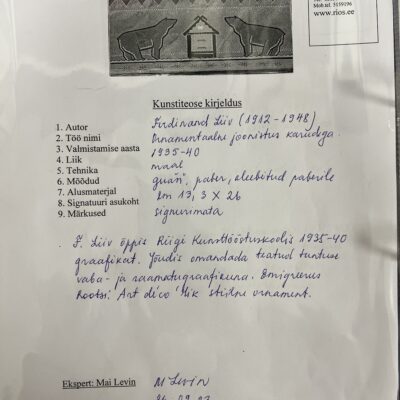 Mob.tel. 5159196
www.rios.ee
Kunstiteose kirjeldus
1. Autor Ferdinand Liiv (1912-1948)
2. Töö nimi Ornamentaalne joonistus karudega.
3. Valmistamise aasta 1935-40
4. Liik maal
5. Tehnika guašš, paber, kleebitud paberile
6. Mõõdud Lm 13,3 X 26
7. Alusmaterjal
8. Signatuuri asukoht signeerimata
9. Märkused
F. Liiv õppis Riigi Kunsttööstuskoolis 1935-40
graafikat. Jõudis omandada teatud tuntuse
vaba- ja raamatugraafikuna. Emigreerus
Rootsi. Art déco'lik stiilne ornament.
Ekspert: Mai Levin M Levin